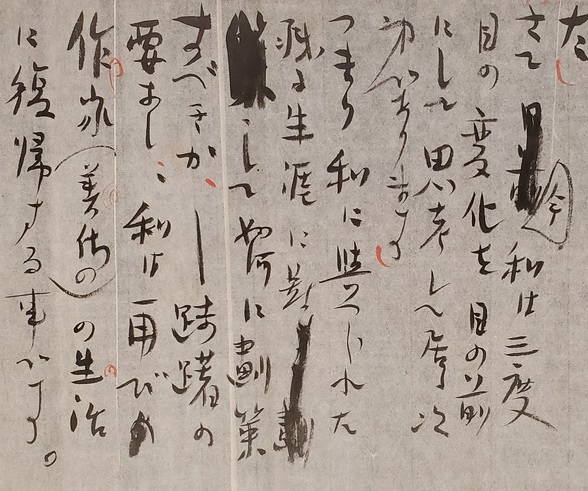 た
さて 今 私は三度
目の変化を目の前
にして思考し居る次
第であります
つまり私に与へられた
残る生涯に

して如何に劃策
すべきか、―躊躇の
要なし、私は再び
作家（美術の）の生活
に復帰する事です。